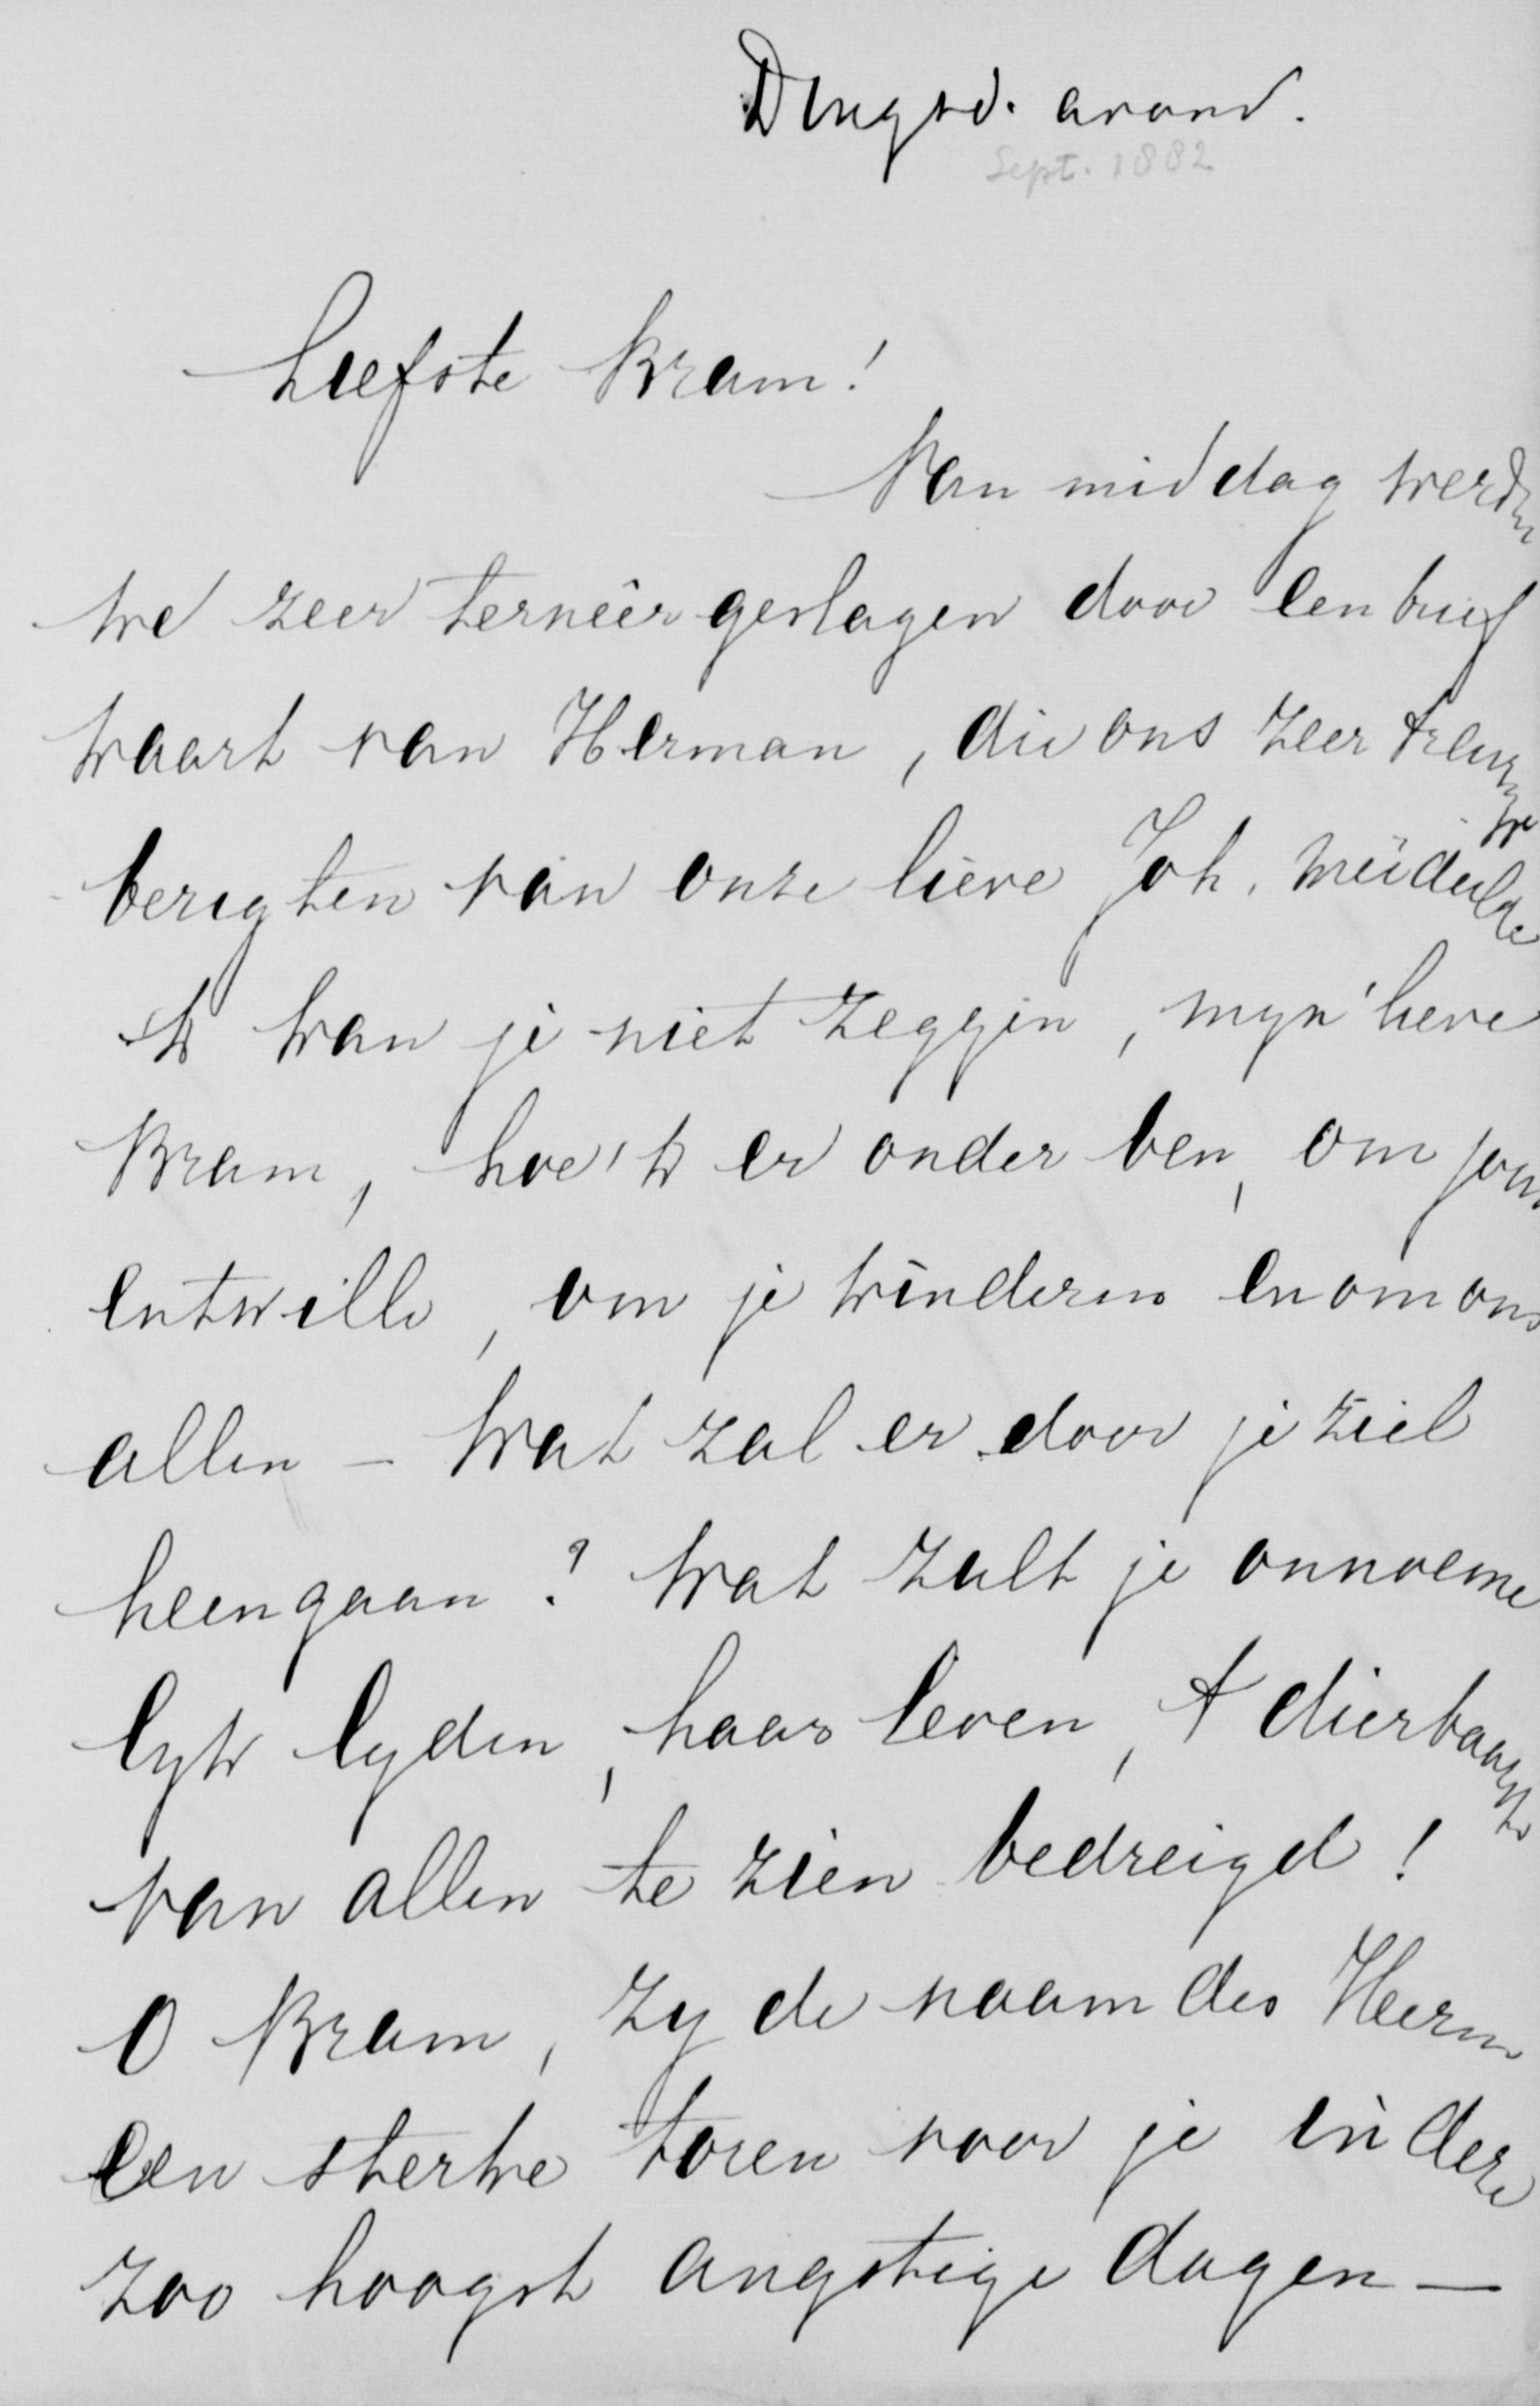 Dingsd. avond.
Sept. 1882
Liefste Bram!
Van middag werden
we zeer terneêrgeslagen door een brief
kaart van Herman, die ons zeer treurige
berigten van onze lieve Joh. meêdeelde
Ik kan je niet zeggen, myn lieve
Bram, hoe 'k er onder ben, om jou
entwille, om je kinderen en om ons
allen — Wat zal er door je ziel
heengaan? Wat zult je onnoeme
lyk lyden, haar leven, 't dierbaarste
van allen te zien bedreigd!
O Bram, zy de naam des Heeren
een sterke toren voor je in deze
zoo hoogst angstige dagen —